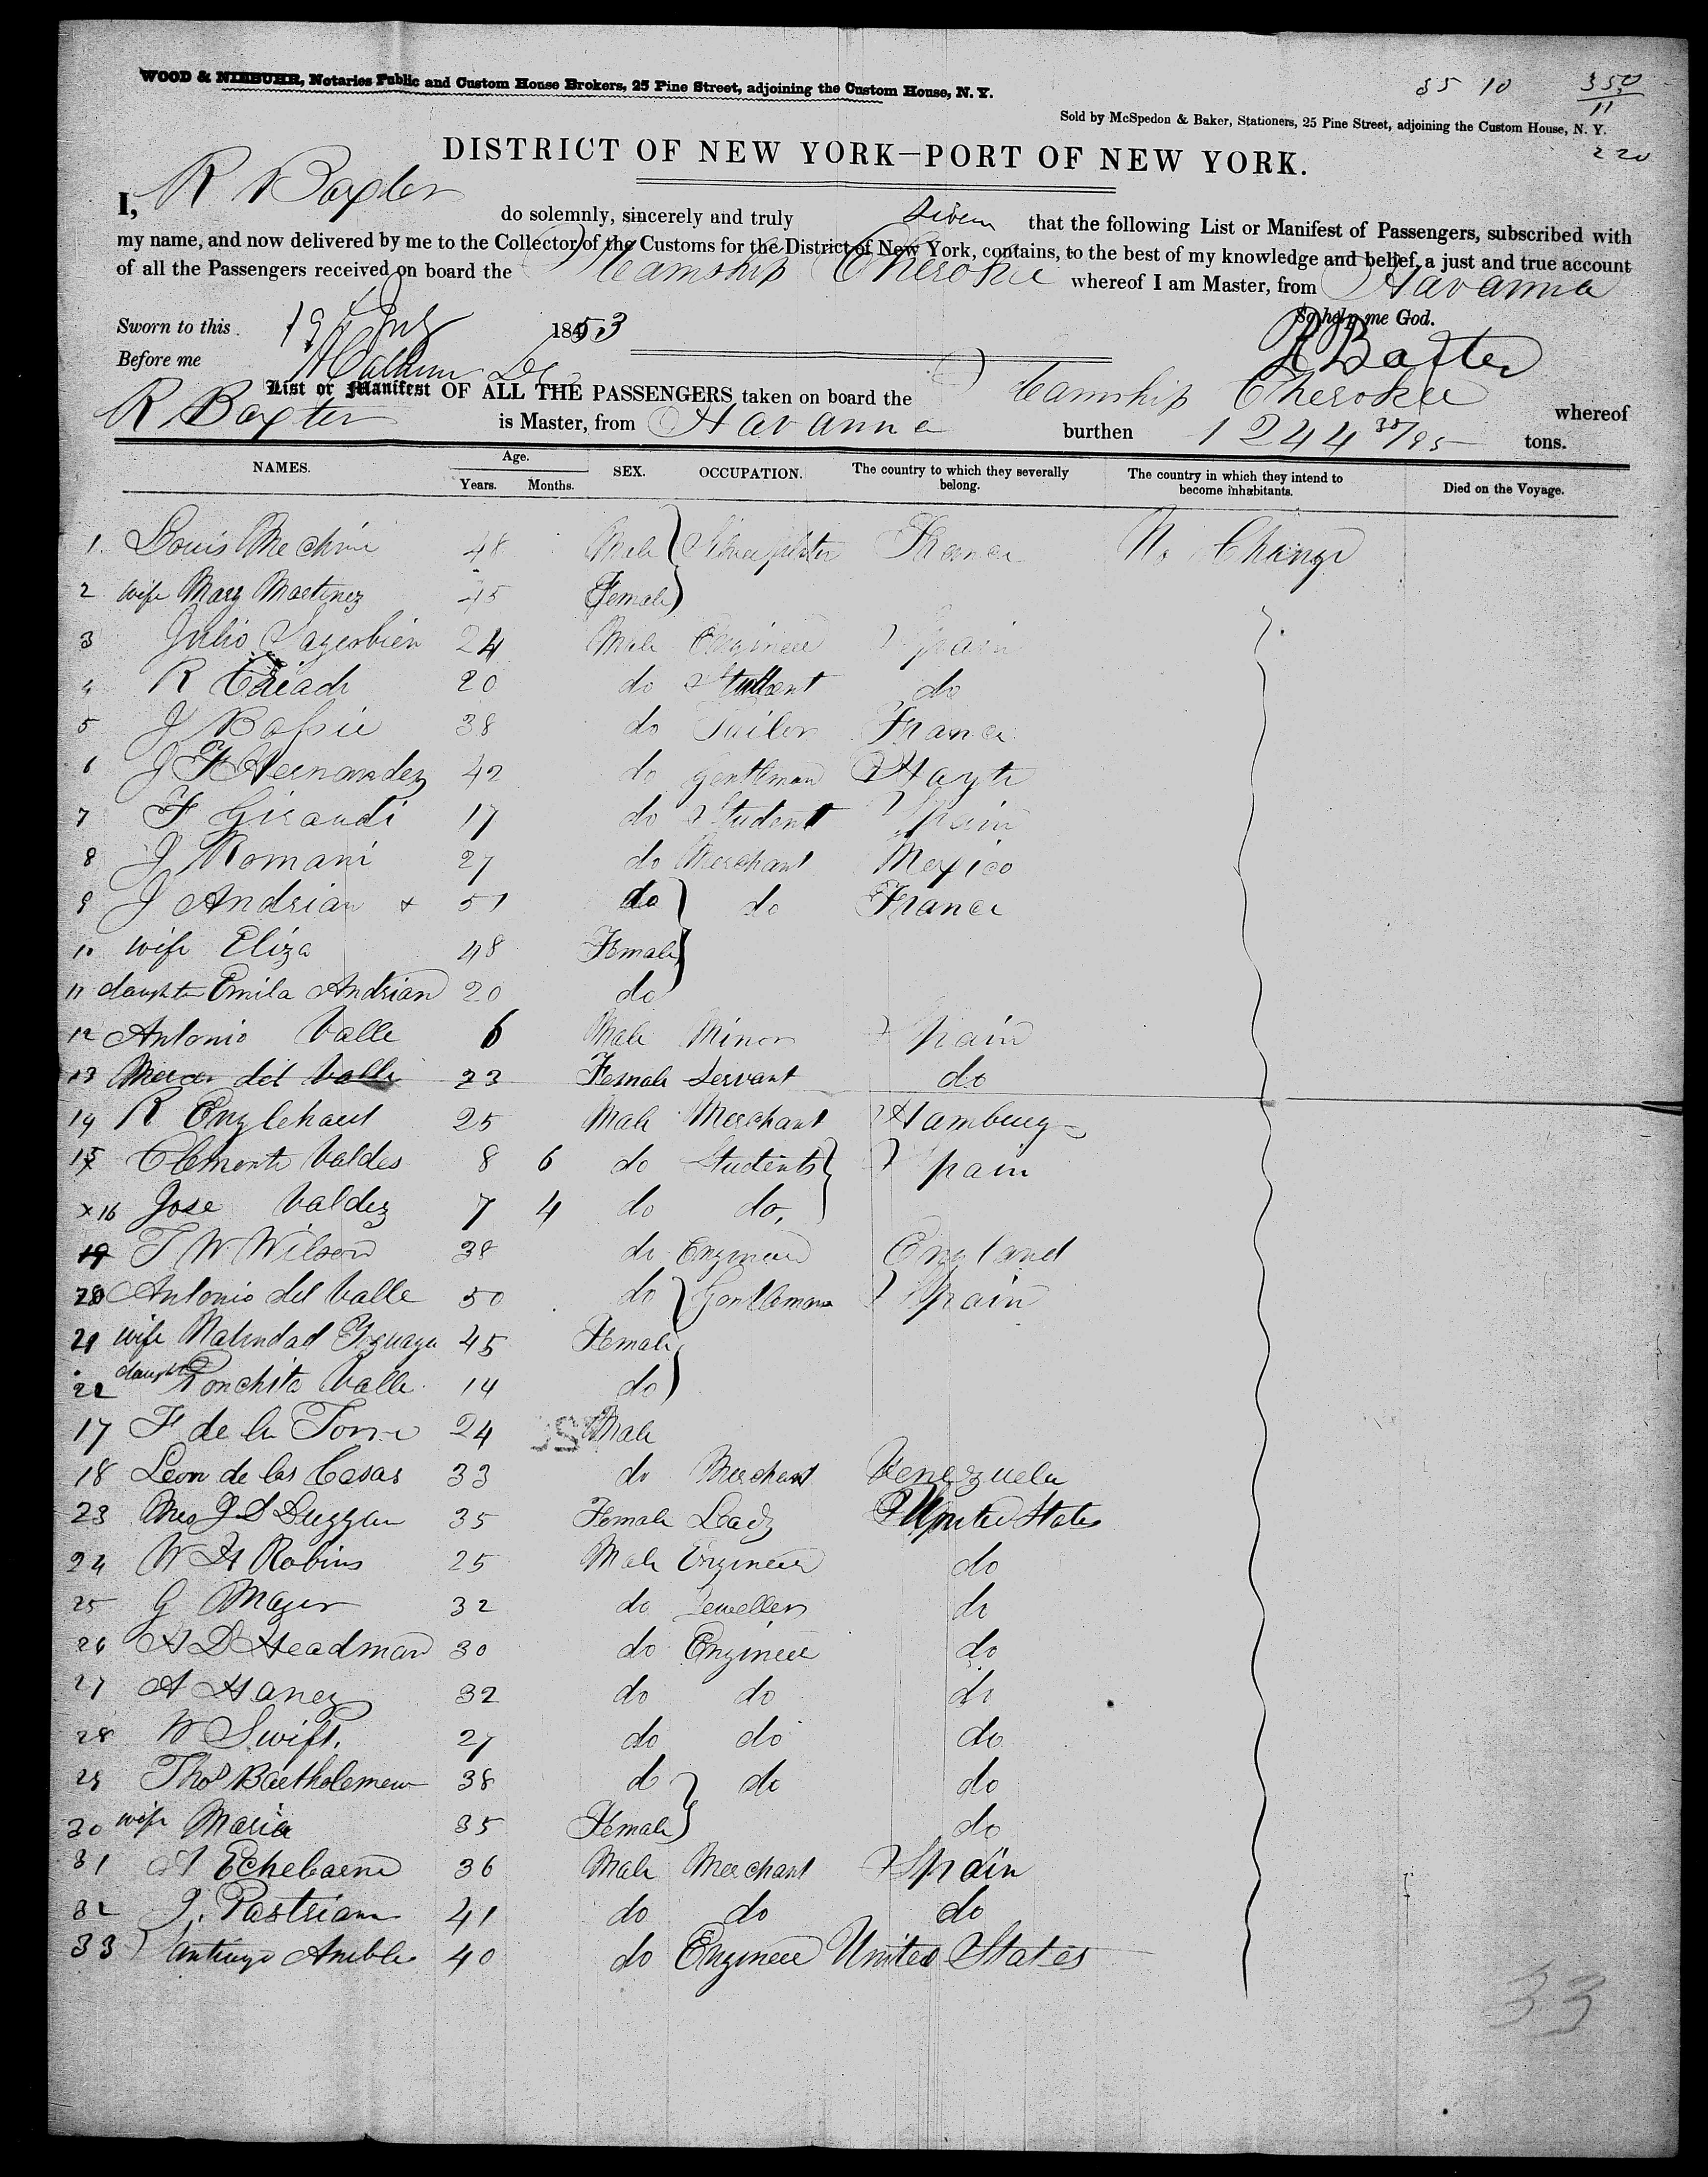 WOOD & NIEBUHR, Notaries Public and Custom House Brokers, 25 Pine Street, adjoining the Custom House, N. Y.
35 10 350
11
Sold by McSpedon & Baker, Stationers, 25 Pine Street, adjoining the Custom House, N. Y.
220
DISTRICT OF NEW YORK—PORT OF NEW YORK.
I, R Baxter do solemnly, sincerely and truly that the following List or Manifest of Passengers, subscribed with
my name, and now delivered by me to the Collector of the Customs for the District of New York, contains, to the best of my knowledge and belief, a just and true account
of all the Passengers received on board the Steamship Cherokee whereof I am Master, from Havanna
So help me God.
Sworn to this 19 1853
Before me R Baxter
List or Manifest OF ALL THE PASSENGERS taken on board the Steamship Cherokee whereof
R Baxter is Master, from Havanna burthen 1244 30/95 tons.
NAMES. Age. Years. Months. SEX. OCCUPATION. The country to which they severally belong. The country in which they intend to become inhabitants. Died on the Voyage.
1. Louis Mechin 48 Male France No Change
2 wife Mary Martinez 45 Female
3 Julio Sagerbien 24 Male Engineer Spain
4 R 20 do Student do
5 J 38 do Tailor France
6 J F Hernandez 42 do gentleman Hayti
7 F Giraudi 17 do Student Spain
8 J Romani 27 do Merchant Mexico
9 J Andrian + 51 do do France
10 wife Eliza 48 Female
11 daughter Emila Andrian 20 do
12 Antonio Valle 6 Male Minor Spain
13 Merces del Valle 23 Female Servant do
14 R Englehart 25 Male Merchant Hamburg
15 Clemente Valdes 8 6 do Students Spain
x16 Jose Valdez 7 4 do do,
19 T W Wilson 38 do Engineer England
20 Antonio del Valle 50 do Gentleman Spain
21 wife 45 Female
22 daughter Ponchita Valle 14 do
17 F de la Torre 24 Male
18 Leon de las Casas 33 do Merchant Venezuela
23 Mrs J D Duggan 35 Female Lady United States
24 W H Robins 25 Male Engineer do
25 G Mayer 32 do Jeweller do
26 H D Headman 30 do Engineer do
27 A Haney 32 do do do
28 W Swift. 27 do do do
29 Thos Bartholemew 38 do do do
30 wife Maria 35 Female do
31 A Echebarne 36 Male Merchant Spain
32 J. Pastriana 41 do do do
33 Santiago Amble 40 do Engineer United States
33